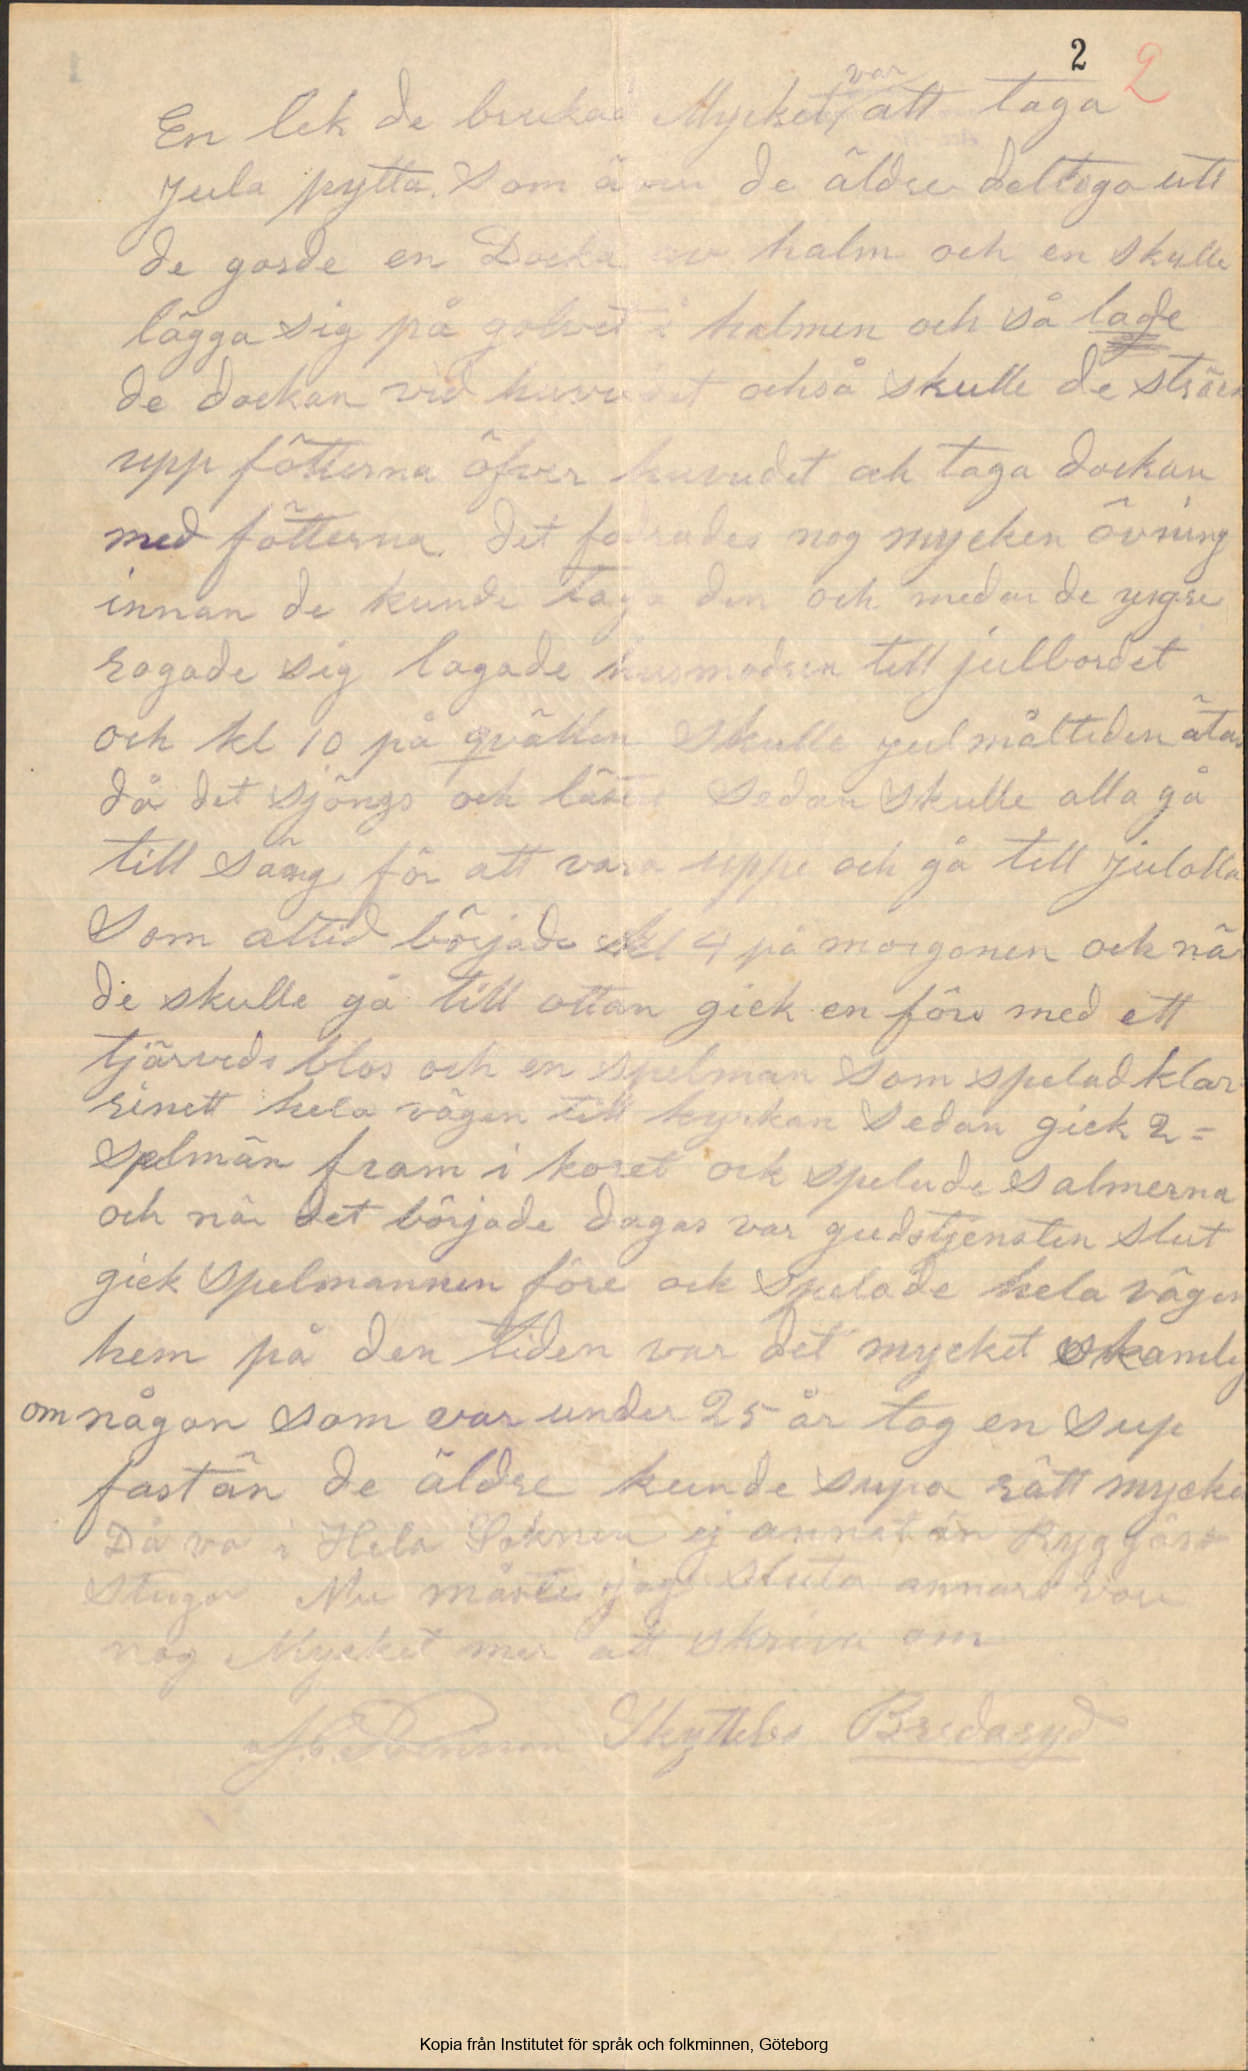 2 2
var
En lek de brukad Mycket att taga
Jula pytta. Som även de äldre deltoga uti
de gorde en Docka av halm och en skulle
lägga sig på golvet i halmen och så lade
de dockan vid huvudet också skulle de sträcka
upp fötterna öfver huvudet ock taga dockan
med fötterna. Det fodrades nog mycken övning
innan de kunde taga den och medan de yngre
rogade sig lagade husmodren till julbordet
och kl 10 på qvällen skulle julmåltiden ätas
då det sjöngs och lästes Sedan skulle alla gå
till säng för att vara uppe och gå till Julotta
Som altid började kl 4 på morgonen och när
de skulle gå till ottan gick en före med ett
tjärveds blos och en spelman som spelad klar
rinett hela vägen till kyrkan Sedan gick 2=
Spelmän fram i koret ock spelade Salmerna
och när det började dagas var gudstjensten slut
gick Spelmannen före ock Spelade hela vägen
hem på den tiden var det mycket skamlig
om någon som var under 25 år tog en Sup
fastän de äldre kunde supa rätt mycket
Då va i Hela Soknen ej annat än Ryggåst
stugor Nu måste jag sluta annars vore
nog Mycket mer att skriva om
Skyttebo Bredaryd
Kopia från Institutet för språk och folkminnen, Göteborg